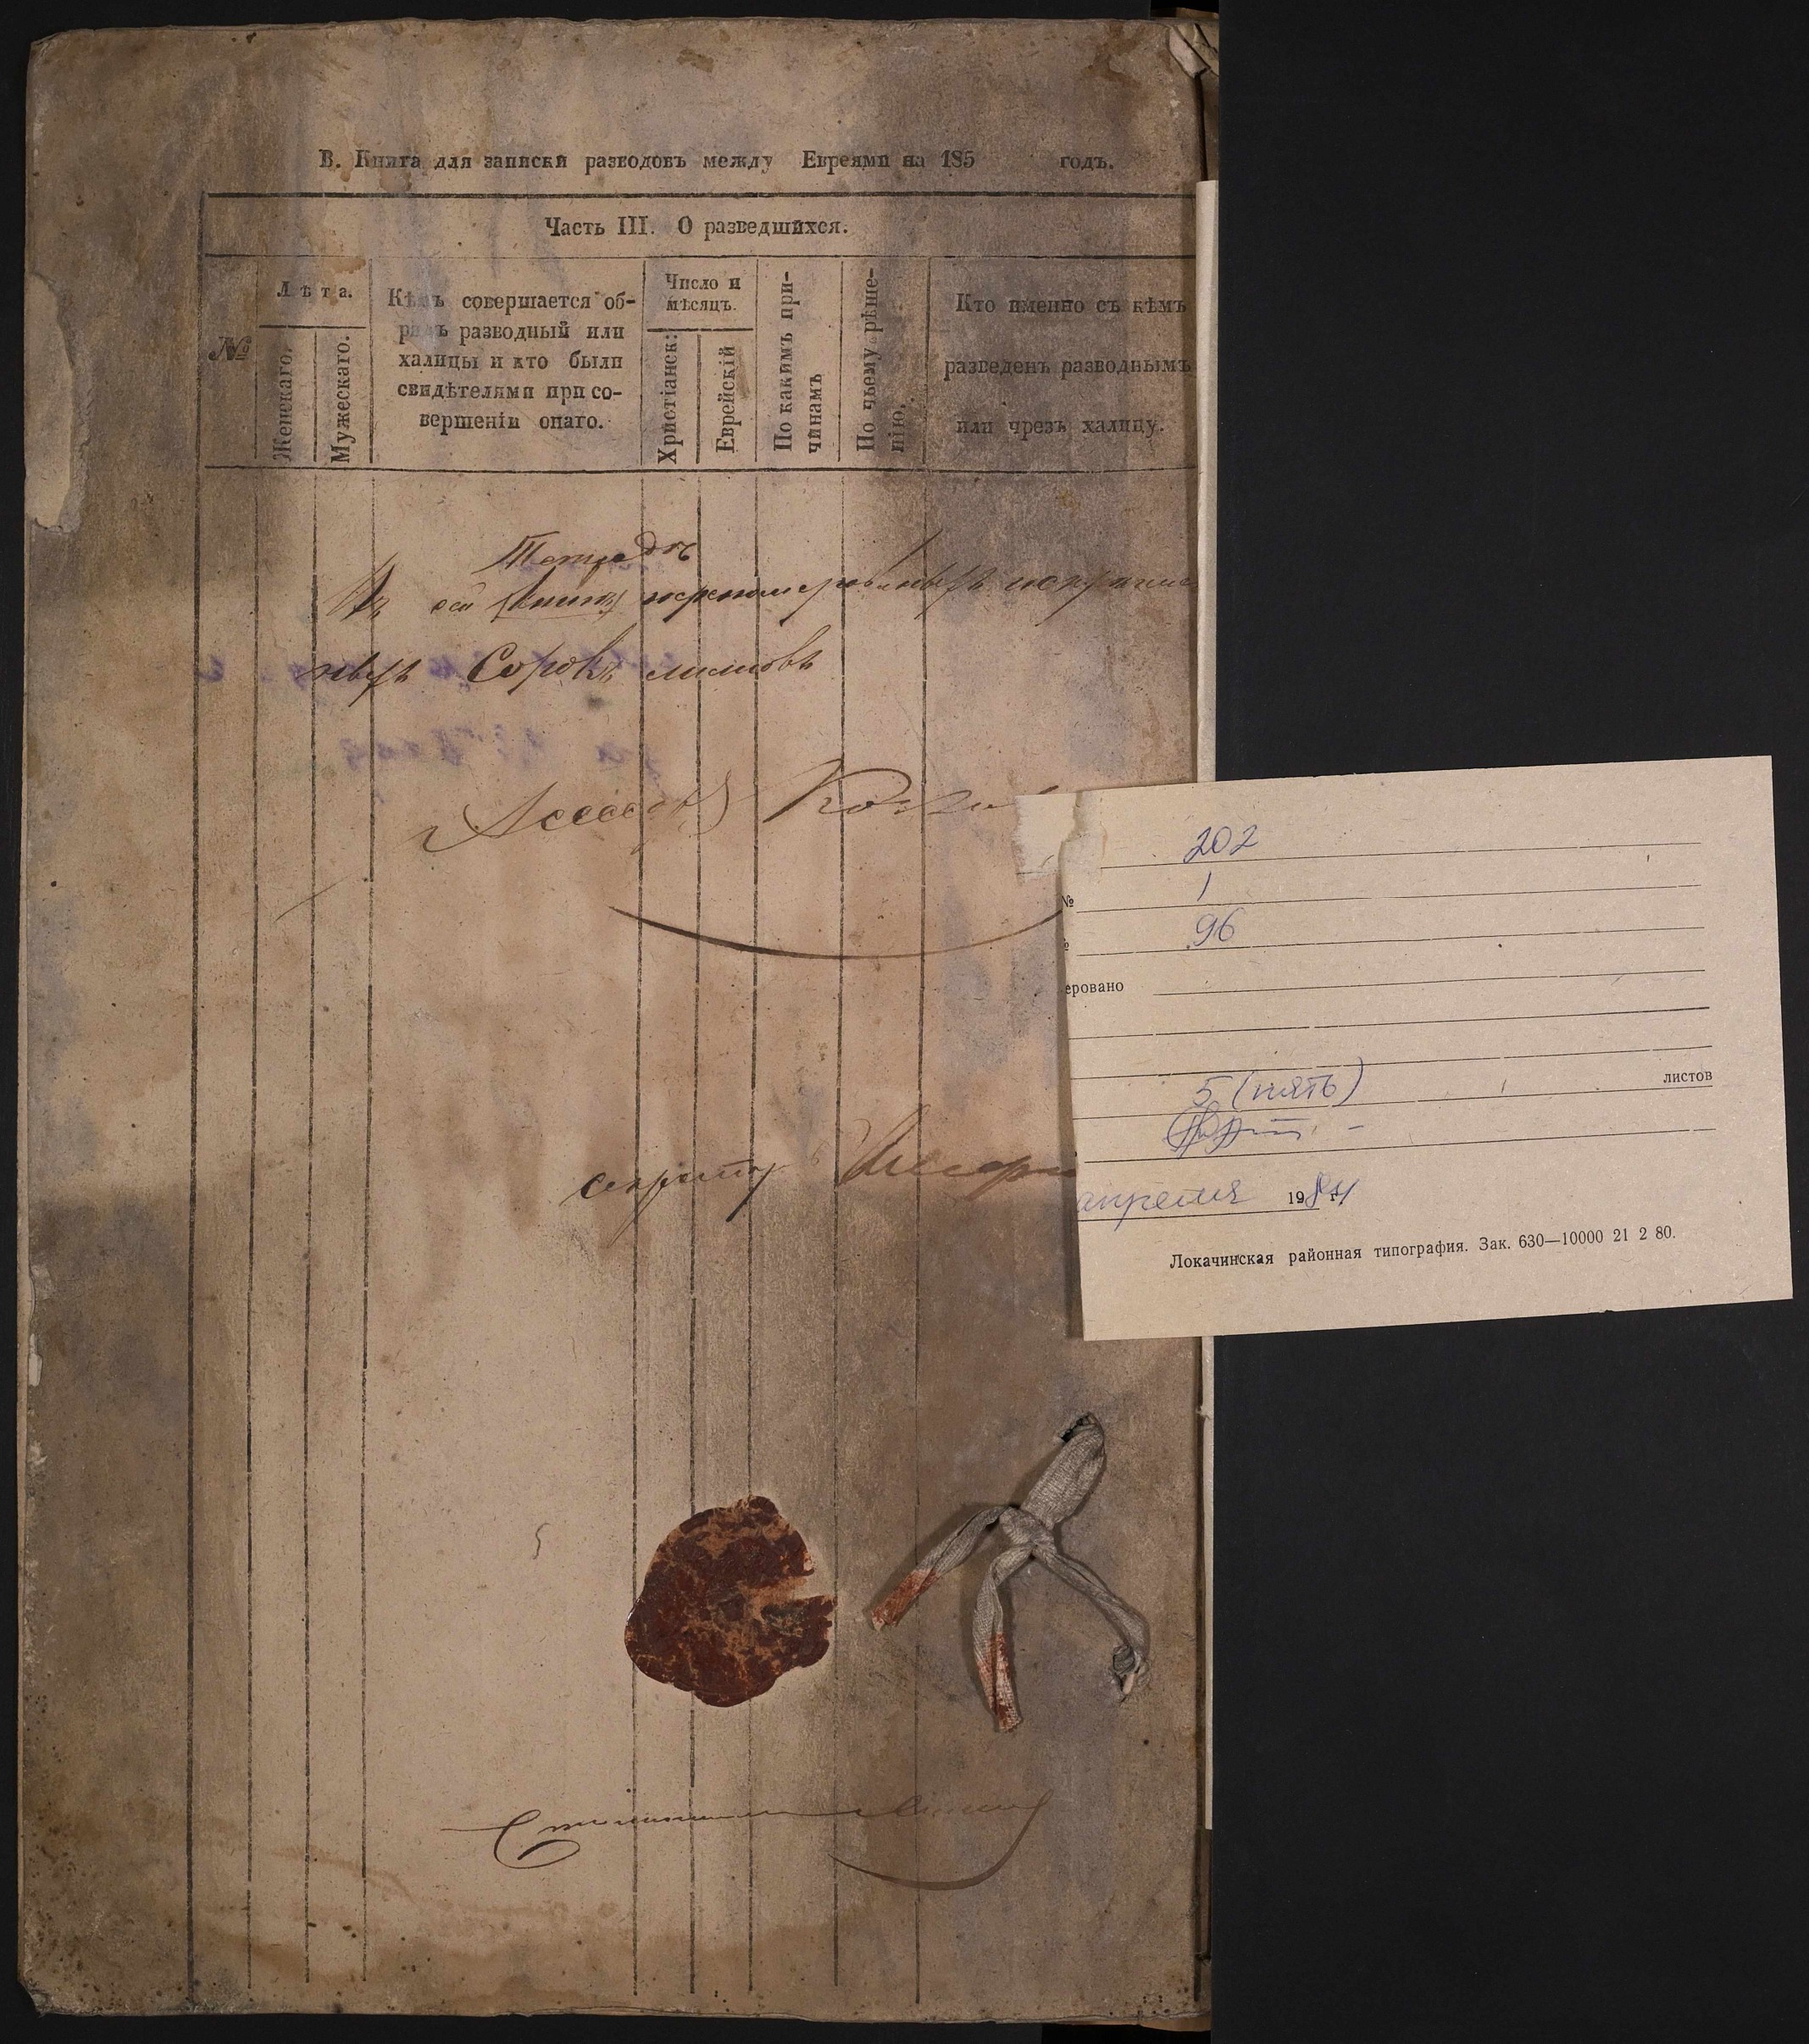 В. Книга для записки разводовъ между Евреями на 185 годъ.
Часть III. О разведшихся.
№
Лѣта.
Женскаго.
Мужескаго.
Кѣмъ совершается об-
рядъ разводный или
халицы и кто были
свидѣтелями при со-
вершеніи онаго.
Число и
мѣсяцъ.
Христіанск:
Еврейскій
По какимъ при-
чинамъ
По чьему рѣше-
нію.
Кто именно съ кѣмъ
разведенъ разводнымъ
или чрезъ халицу.
Тетрадѣ
Въ сей книгѣ перенумерованныхъ
ныхъ Сорокъ листовъ
Ассесоръ
секретарь
202
№ 1
96
еровано
5 (пять)
листов
апреля 1984
Локачинская районная типография. Зак. 630—10000 21 2 80.